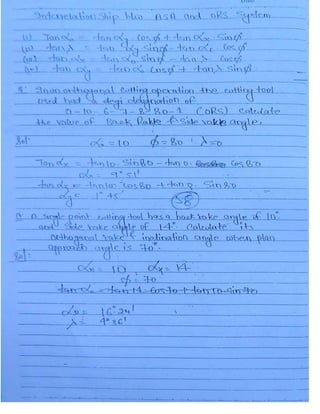 Interrelationship b/w ASA and ORS System
(i) Tanαo = tanαy cosφ + tanαx sinφ
(ii) tanλ = tanαy sinφ - tanαx cosφ
(iii) tanαx = tanαo sinφ - tanλ cosφ
(iv) tanαy = tanαo cosφ + tanλ sinφ
Q. In an orthogonal cutting operation the cutting tool
used had a
0-10-6-7-8-80-1 (ORS) calculate
the value of Back Rake & Side rake angle.
Sol:
αo = 10 φ = 80 λ = 0
Tanαx = tan10. Sin80 - tan0. Cos80
αx = 9° 51'
tanαy = tan10 Cos80 + tan0. Sin80
αy = 1° 45'
Q. A single point cutting tool has a back rake angle of 10°
and side rake angle of 14°. Calculate its
orthogonal rake & inclination angle when plan
approach angle is 70°.
Sol:
= 10 αx = 14
φ = 70
tan = tan14 cos70 + tan10 sin70
= 16° 24'
λ = 4°